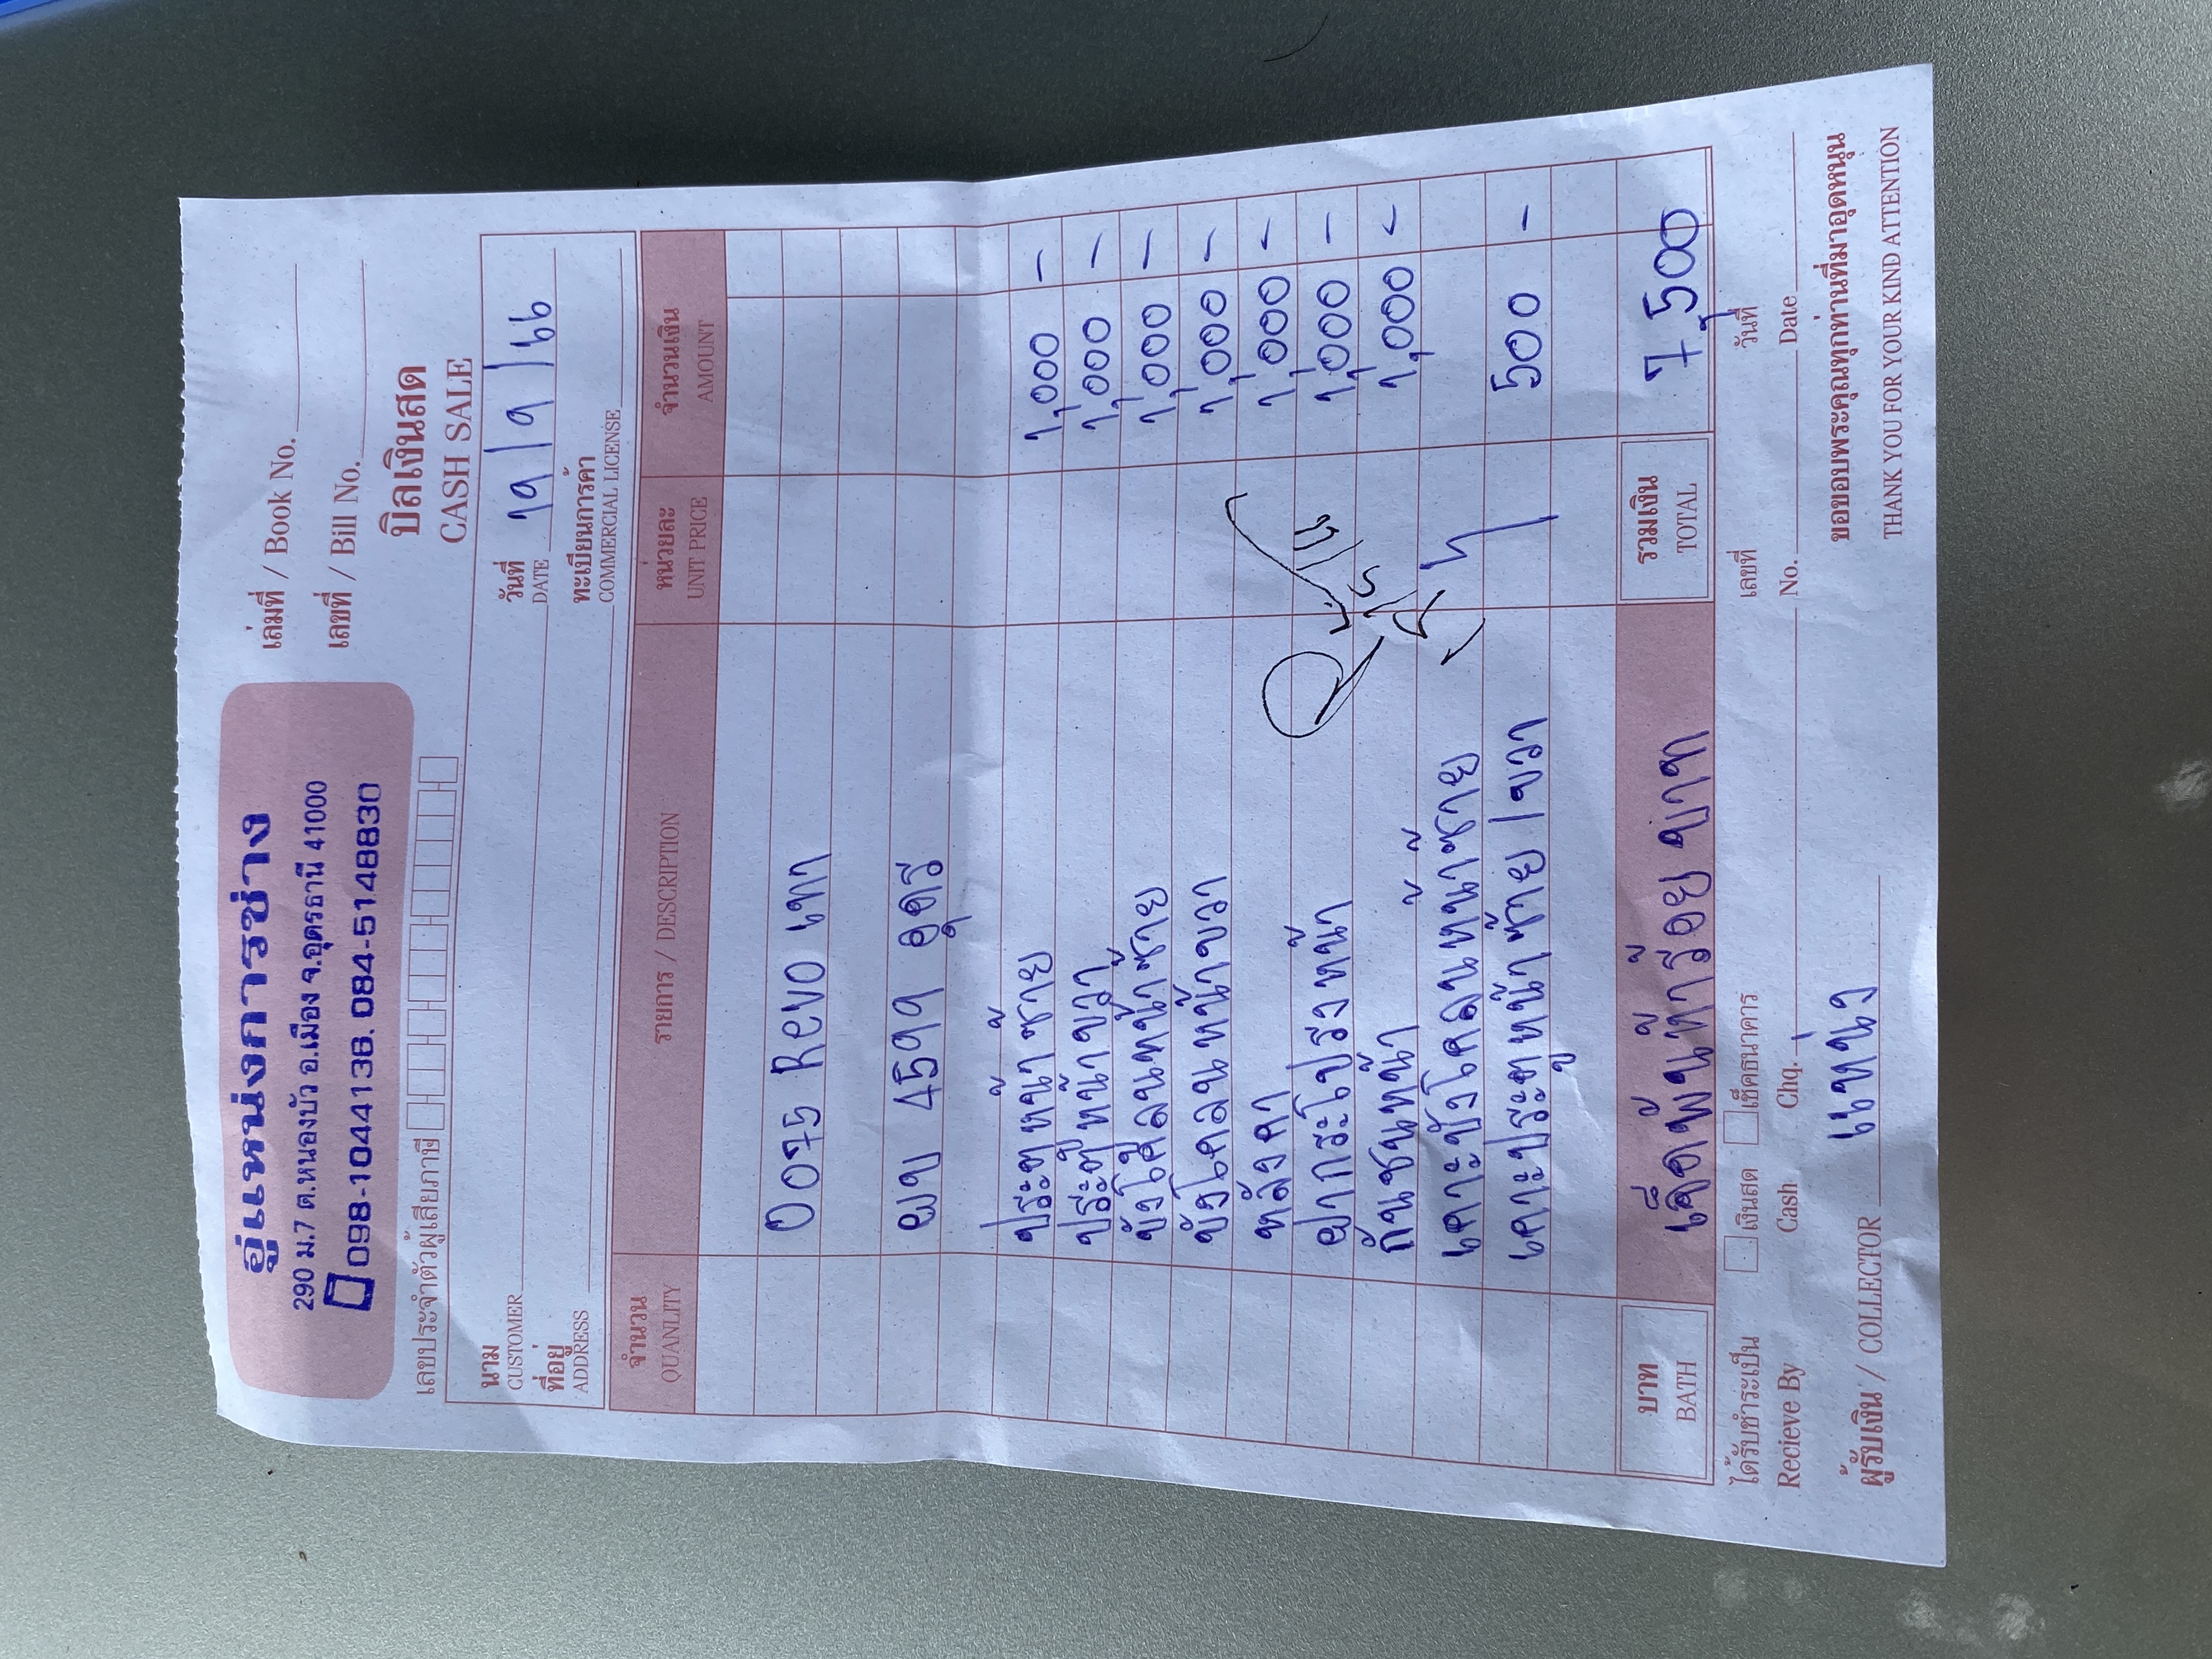 อู่แหน่งการช่าง
290 ม.7 ต.หนองบัว อ.เมือง จ.อุดรธานี 41000
098-1044136. 084-5148830
เล่มที่ / Book No.
เลขที่ / Bill No.
เลขประจำตัวผู้เสียภาษี
บิลเงินสด
CASH SALE
นาม
CUSTOMER
วันที่ 19/9/66
DATE
ที่อยู่
ADDRESS
ทะเบียนการค้า
COMMERCIAL LICENSE
จำนวน รายการ / DESCRIPTION หน่วยละ จำนวนเงิน
QUANLITY UNIT PRICE AMOUNT
Revo เทา
ผข 4599 อุดร
ประตูหน้าซ้าย 1,000 -
ประตูหน้าขวา 1,000 -
บังโคลนหน้าซ้าย 1,000 -
บังโคลนหน้าขวา 1,000 -
หลังคา 1,000 -
ฝากระโปรงหน้า 1,000 -
กันชนหน้า 1,000 -
เคาะบังโคลนหน้าซ้าย
เคาะประตูหน้าซ้าย/ขวา 500 -
บาท เจ็ดพันห้าร้อยบาท รวมเงิน 7,500
BATH TOTAL
ได้รับชำระเป็น เงินสด เช็คธนาคาร เลขที่ วันที่
Recieve By Cash Chq. No. Date
ผู้รับเงิน / COLLECTOR แหน่ง
ขอขอบพระคุณทุกท่านที่มาอุดหนุน
THANK YOU FOR YOUR KIND ATTENTION